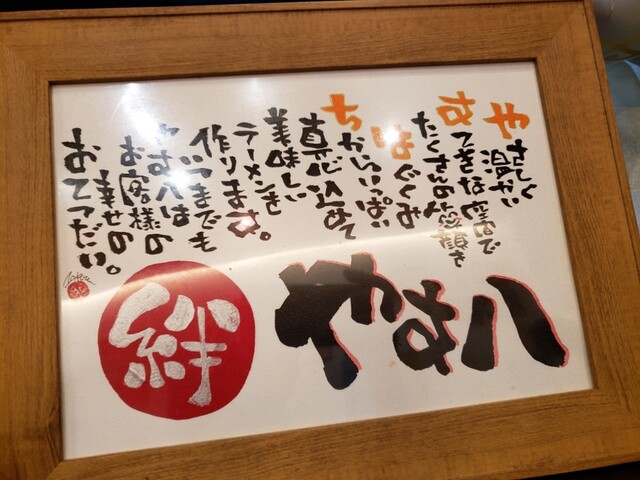 やさしく
温かい
すてきな空間で
たくさんの笑顔を
はぐくみ
ちからいっぱい
真心込めて
美味しい
ラーメンを
作ります。
いつまでも
やす八は
お客様の
幸せの
おてつだい。
やす八
絆